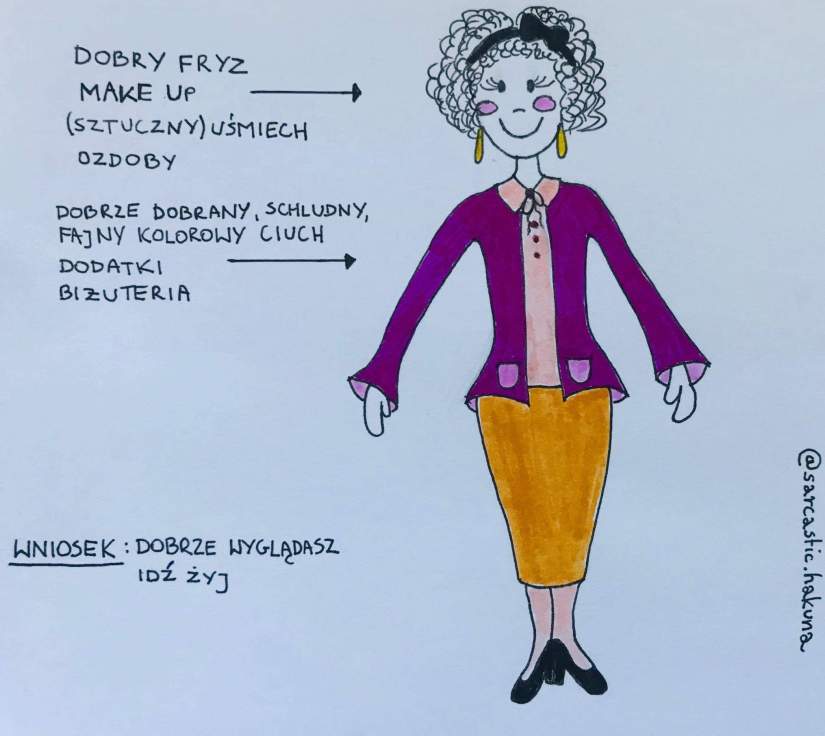 DOBRY FRYZ
MAKE UP
(SZTUCZNY) UŚMIECH
OZDOBY
DOBRZE DOBRANY, SCHLUDNY,
FAJNY KOLOROWY CIUCH
DODATKI
BIŻUTERIA
WNIOSEK: DOBRZE WYGLĄDASZ
IDŹ ŻYJ
@sarcastic.hakuna